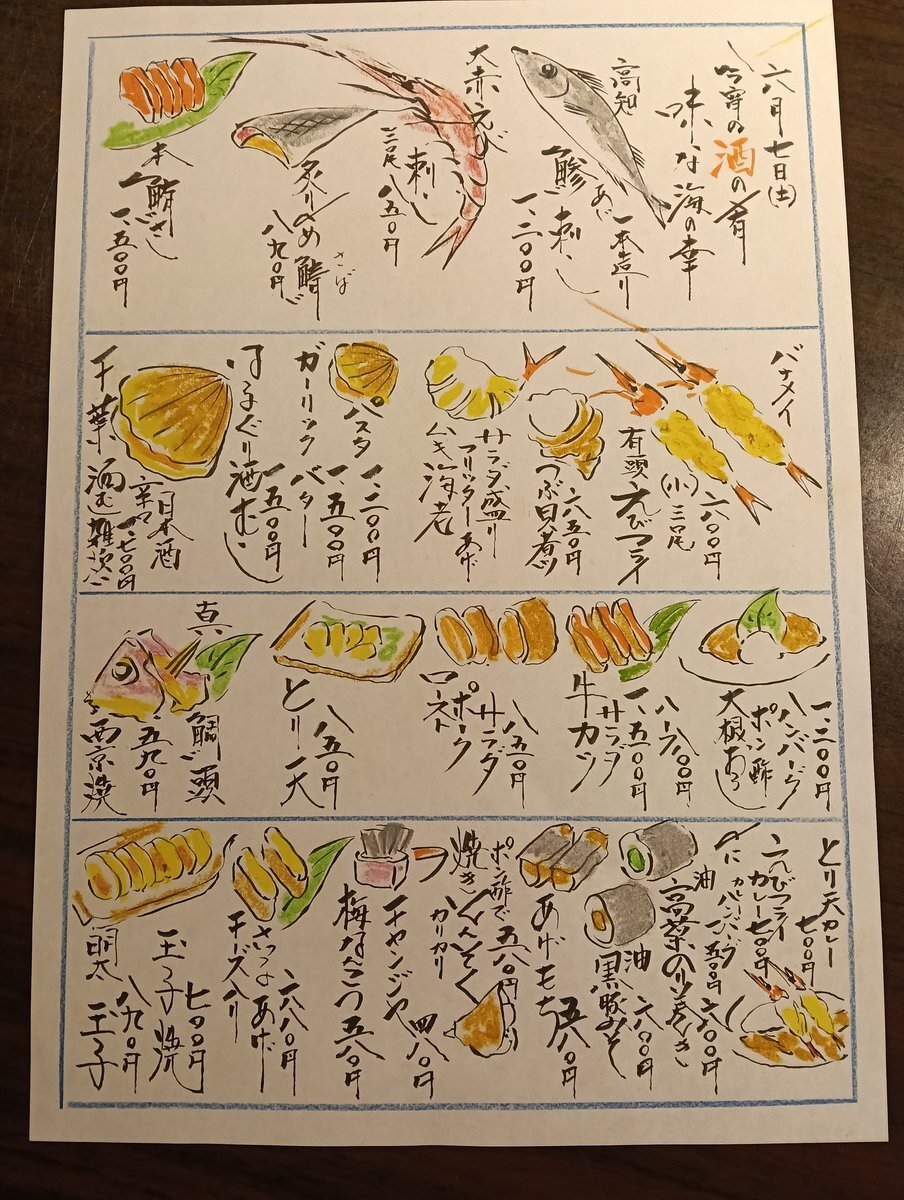 六月七日(土)
今宵の酒の肴
味な海の幸
高知
あじ
一本造り
鯵刺し
一、二〇〇円
大赤えび
刺し
三尾
八五〇円
さば
炙りしめ鯖
八九〇円
本鮪
一、五〇〇円
バナメイ
有頭えびフライ
(小)三尾
一、八〇〇円
つぶ貝煮
八五〇円
サラダ盛り
フリッターあげ
むき海老
パスタ
一、二〇〇円
ガーリック
バター
一、五〇〇円
はまぐり酒むし
一、五〇〇円
千葉
日本酒
酒むし雑炊
一、七〇〇円
ハンバーグ
ポン酢
大根おろし
一、二〇〇円
牛カツ
サラダ
一、五〇〇円
ハーフ八〇〇円
ポーク
ロースト
サラダ
八五〇円
とり天
八五〇円
真
鯛頭
西京焼
五九〇円
とり天カレー
七〇〇円
えびフライ
カレー七〇〇円
ハンバーグ
カレー
五〇〇円
高菜のり巻き
油
六〇〇円
黒豚みそ
油
六八〇円
あげもち
五八〇円
ポン酢で
五八〇円
焼き
カリカリ
チャンジャ
四八〇円
梅
五八〇円
さつまあげ
チーズ入り
六八〇円
玉子焼
七〇〇円
明太玉子
八九〇円